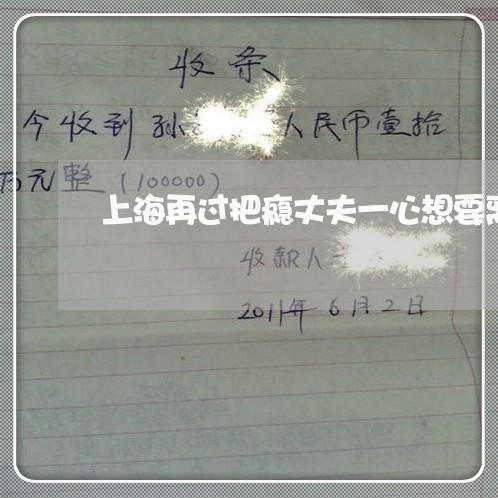 收条
今收到孙 人民币壹拾
万元整(100000)
上海再过把瘾丈夫一心想要
收款人
2011年6月2日